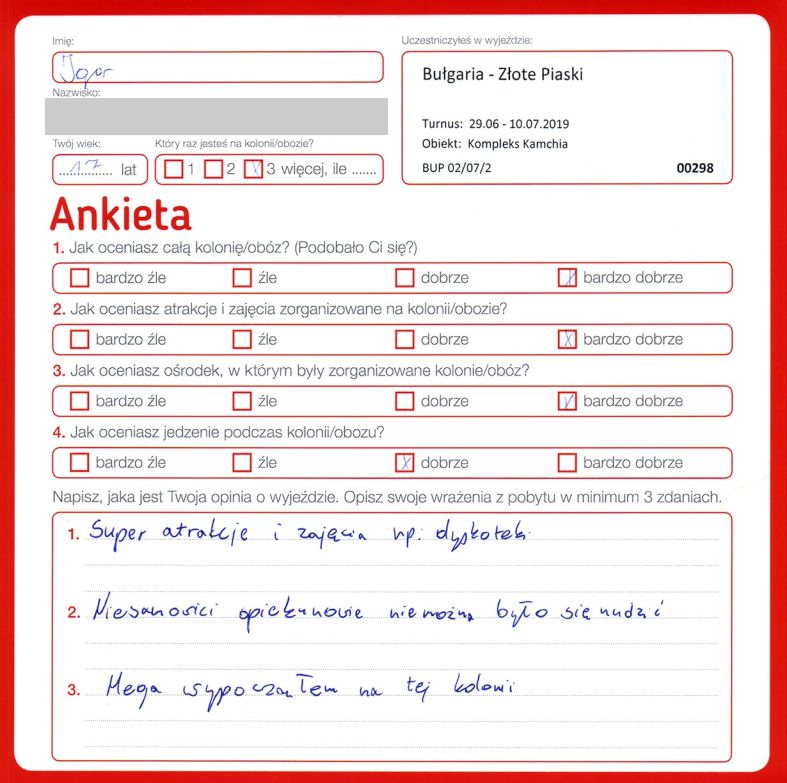 Imię:
Igor
Nazwisko:
Twój wiek:
17 lat
Który raz jesteś na kolonii/obozie?
1 2 3 więcej, ile .......
Uczestniczyłeś w wyjeździe:
Bułgaria - Złote Piaski
Turnus: 29.06 - 10.07.2019
Obiekt: Kompleks Kamchia
BUP 02/07/2 00298
Ankieta
1. Jak oceniasz całą kolonię/obóz? (Podobało Ci się?)
bardzo źle źle dobrze bardzo dobrze
2. Jak oceniasz atrakcje i zajęcia zorganizowane na kolonii/obozie?
bardzo źle źle dobrze bardzo dobrze
3. Jak oceniasz ośrodek, w którym były zorganizowane kolonie/obóz?
bardzo źle źle dobrze bardzo dobrze
4. Jak oceniasz jedzenie podczas kolonii/obozu?
bardzo źle źle dobrze bardzo dobrze
Napisz, jaka jest Twoja opinia o wyjeździe. Opisz swoje wrażenia z pobytu w minimum 3 zdaniach.
1. Super atrakcje i zajęcia np. dyskoteki
2. Niesamowici opiekunowie nie można było się nudzić
3. Mega wypocząłem na tej kolonii